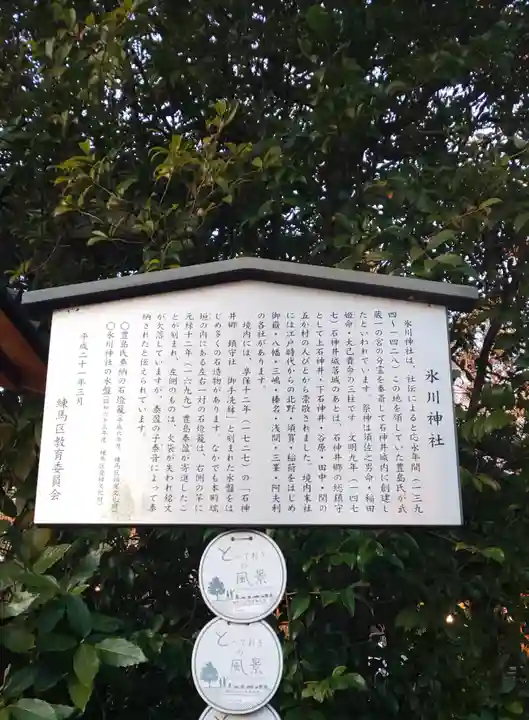 氷川神社
氷川神社は、社伝によると応永年間（一三九
四～一四二八）この地を領していた豊島氏が武
蔵一の宮の分霊を奉斎して石神井城内に創建し
たといわれています。祭神は須佐之男命・稲田
姫命・大己貴命の三柱です。文明九年（一四七
七）石神井城落城のあとは、石神井郷の総鎮守
として上石神井・下石神井・谷原・田中・関の
五か村の人びとから崇敬されました。境内末社
には江戸時代からの北野・須賀・稲荷をはじめ
御嶽・八幡・三嶋・榛名・浅間・三峯・阿夫利
の各社があります。
境内には、享保十二年（一七二七）の「石神
井郷 鎮守社 御手洗鉢」と刻まれた水盤をは
じめ多くの石造物があります。なかでも本殿瑞
垣の内にある左右一対の石燈籠は、右側の竿に
元禄十二年（一六九九）豊島泰盈が寄進したこ
とが刻まれ、左側のものは、火袋が失われ銘文
が欠落していますが、泰盈の子泰音によって奉
納されたと伝えられています。
〇豊島氏奉納の石燈籠
〇氷川神社の水盤
平成二十一年三月
練馬区教育委員会
とっておき
の
風景
とっておき
の
風景